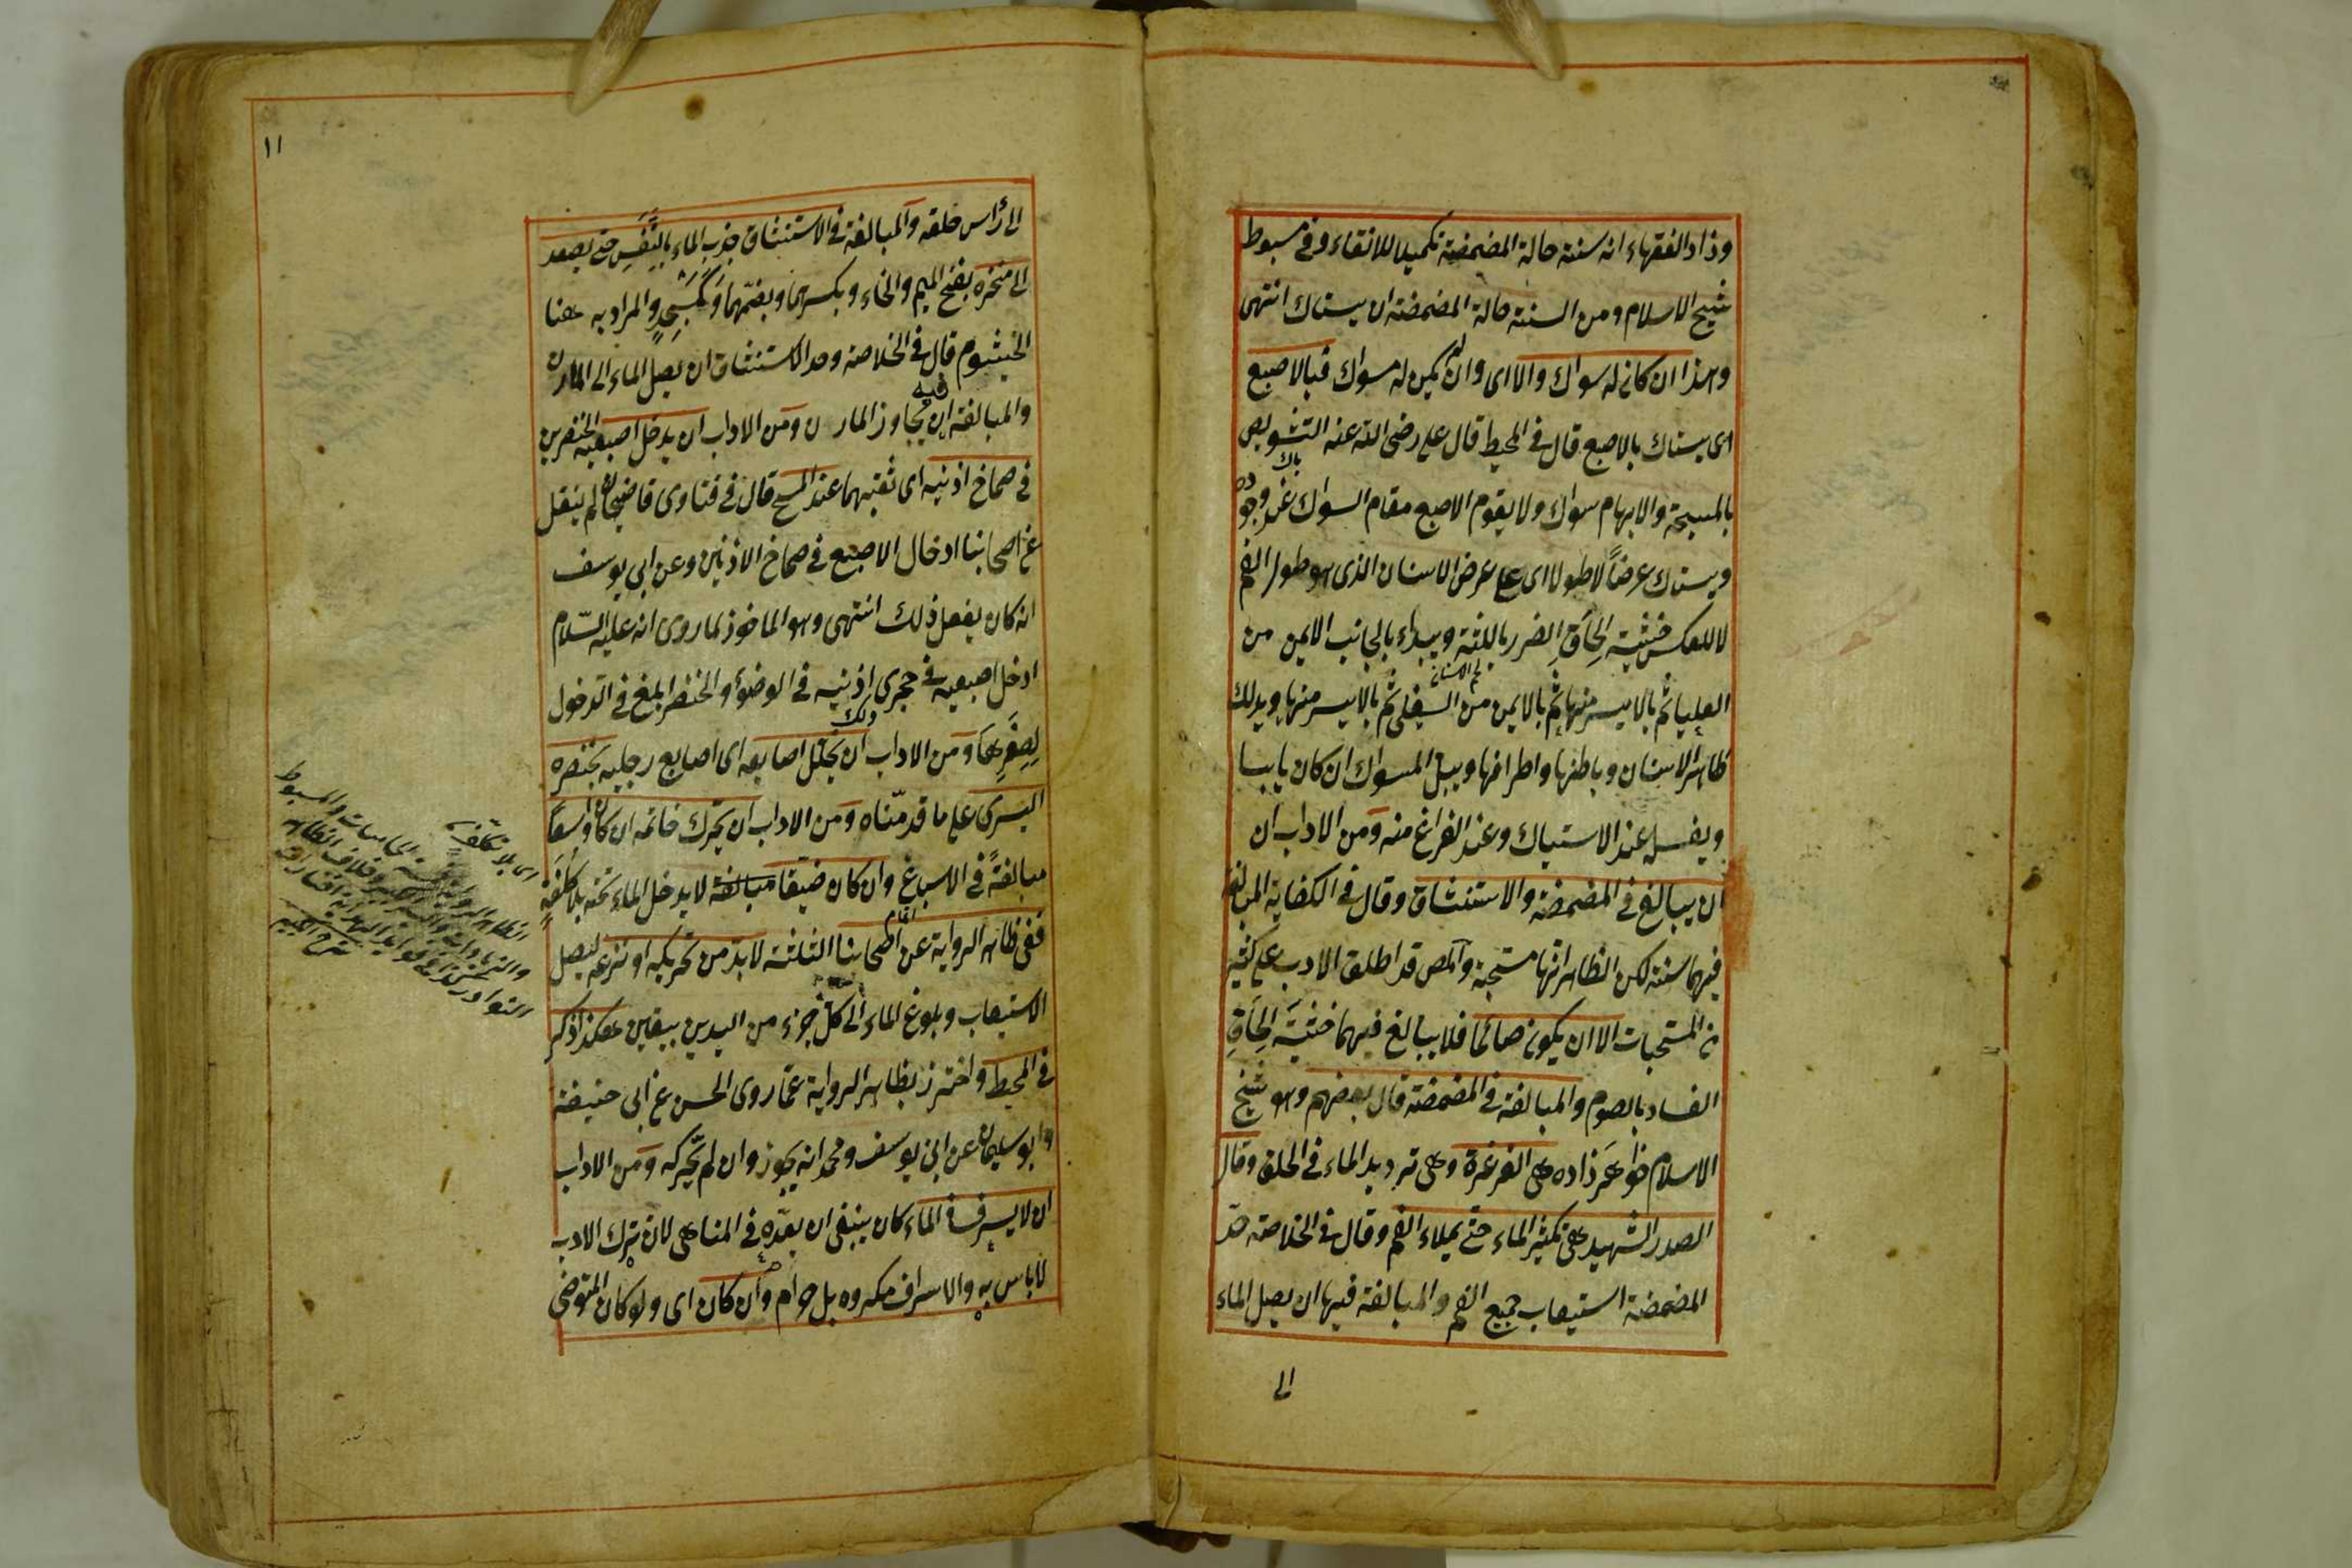 وزاد الفقهاء انه سنته حالة المضمضة تكميلا للانقاء وفى مبسوط
شيخ الاسلام ومن السنة حالة المضمضة ان يستاك انتهى
وهذا ان كان له سواك والا اى وان لم يكن له سواك فبالاصبع
اى يستاك بالاصبع قال فى المحيط قال على رضى الله عنه التشويص
بالمسبحة والابهام سواك ولا يقوم الاصبع مقام السواك عند وجوده
ويستاك عرضاً لا طولا اى على عرض الاسنان الذى هو طول الفم
لا للعكس خشية اِلحَاقِ الضرر باللثة ويبداء بالجانب الايمن من
العليا ثم بالايسر منها ثم بالايمن من السفلى ثم بالايسر منها ويدلك
ظاهر الاسنان وباطنها واطرافها ويبل المسواك ان كان يابسا
ويغسله عند الاستياك وعند الفراغ منه ومن الاداب ان
ان يبالغ فى المضمضة والاستنشاق وقال فى الكفاية المبالغة
فيهما سنة لكن الظاهر انها مستحبة والمص قد اطلق الادب على كثير
من المستحبات الا ان يكون صائما فلا يبالغ فيهما خشيَةَ اِلحَاقِ
الفساد بالصوم والمبالغة فى المضمضة قال بعضهم وهو شيخ
الاسلام خواهر زاده هى الغرغرة وهى ترديد الماء فى الحلق وقال
الصدر الشهيد هى تكثير الماء حتى يملاء الفم وقال فى الخلاصة حد
المضمضة استيعاب جميع الفم والمبالغة فيها ان يصل الماء
الى
١١
الى رأس حلقه والمبالغة فى الاستنشاق جذب الماء بالنَّفَسِ حتى يصعد
الى منخره بفتح الميم والخاء وبكسرهما وبضمّهما وكَمَسْجِدٍ والمراد به هنا
الخيشوم قال فى الخلاصة وحد الاستنشاق ان يصل الماء الى المارن
والمبالغة فيه ان يجاوز المارن ومن الاداب ان يدخل اصبعيه الخنصرين
فى صماخ اذنيه اى ثقبيهما عند المسح قال فى فتاوى قاضيخان لم ينقل
عن اصحابنا ادخال الاصبع فى صماخ الاذنين وعن ابى يوسف
انه كان يفعل ذلك انتهى وهو الماخوذ لما روى انه عليه السّلام
ادخل اصبعيه فى حجرى اذنيه فى الوضؤ والخنصر ابلغ فى الدخول
لِصِغَرِهَا ومن الاداب ان يخلل اصابعه اى اصابع رجليه بخنصره
اليسرى على ما قدمّناه ومن الاداب ان يحرك خاتمه ان كان واسعًا
مبالغةً فى الاسباغ وان كان ضيقا مبالغة لا يدخل الماء تحته بلا كُلْفَةٍ
ففى ظاهر الرواية عن اصحابنا الثلثة لا بد من تحريكه او نزعه ليصل
الاستيعاب وبلوغ الماء الى كل جزء من اليدين بيقين هكذا ذكر
فى المحيط واحترز بظاهر الرواية عمّا روى الحسن عن ابى حنيفة
وابو سليمان عن ابى يوسف ومحمد انه يجوز وان لم يحّركه ومن الاداب
ان لا يسرف فى الماء كان ينبغى ان يعدّه فى المناهى لان ترك الادب
لا باس به والاسراف مكروه بل حرام وان كان اى ولو كان المتوضى
اى بلا تكلّف